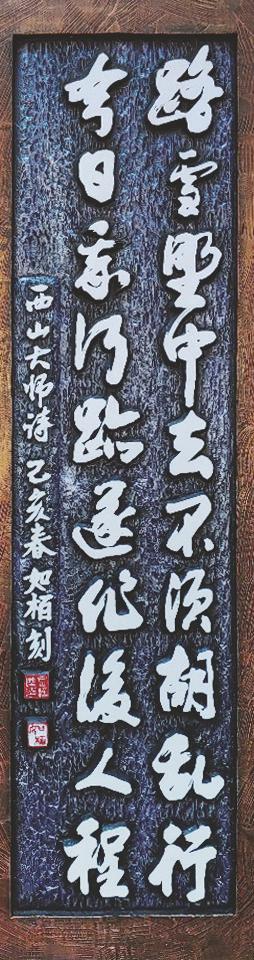 踏雪野中去不須胡乱行
今日我行跡遂作後人程
西山大师詩 己亥春 如栢刻